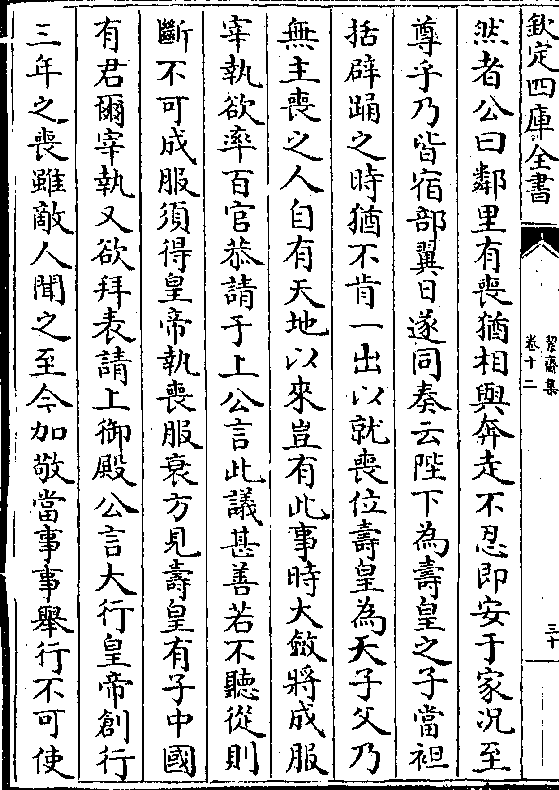 欽定四庫全書
絜齋集
卷十二
三十
然者公曰鄰里有喪猶相與奔走不忍即安于家况至
尊乎乃皆宿部翼日遂同奏云陛下為壽皇之子當袒
括辟踊之時猶不肯一出以就喪位壽皇為天子父乃
無主喪之人自有天地以來豈有此事時大斂將成服
宰執欲率百官恭請于上公言此議甚善若不聽從則
斷不可成服須得皇帝執喪服衰方見壽皇有子中國
有君爾宰執又欲拜表請上御殿公言大行皇帝創行
三年之喪雖敵人聞之至今加敬當事事舉行不可使